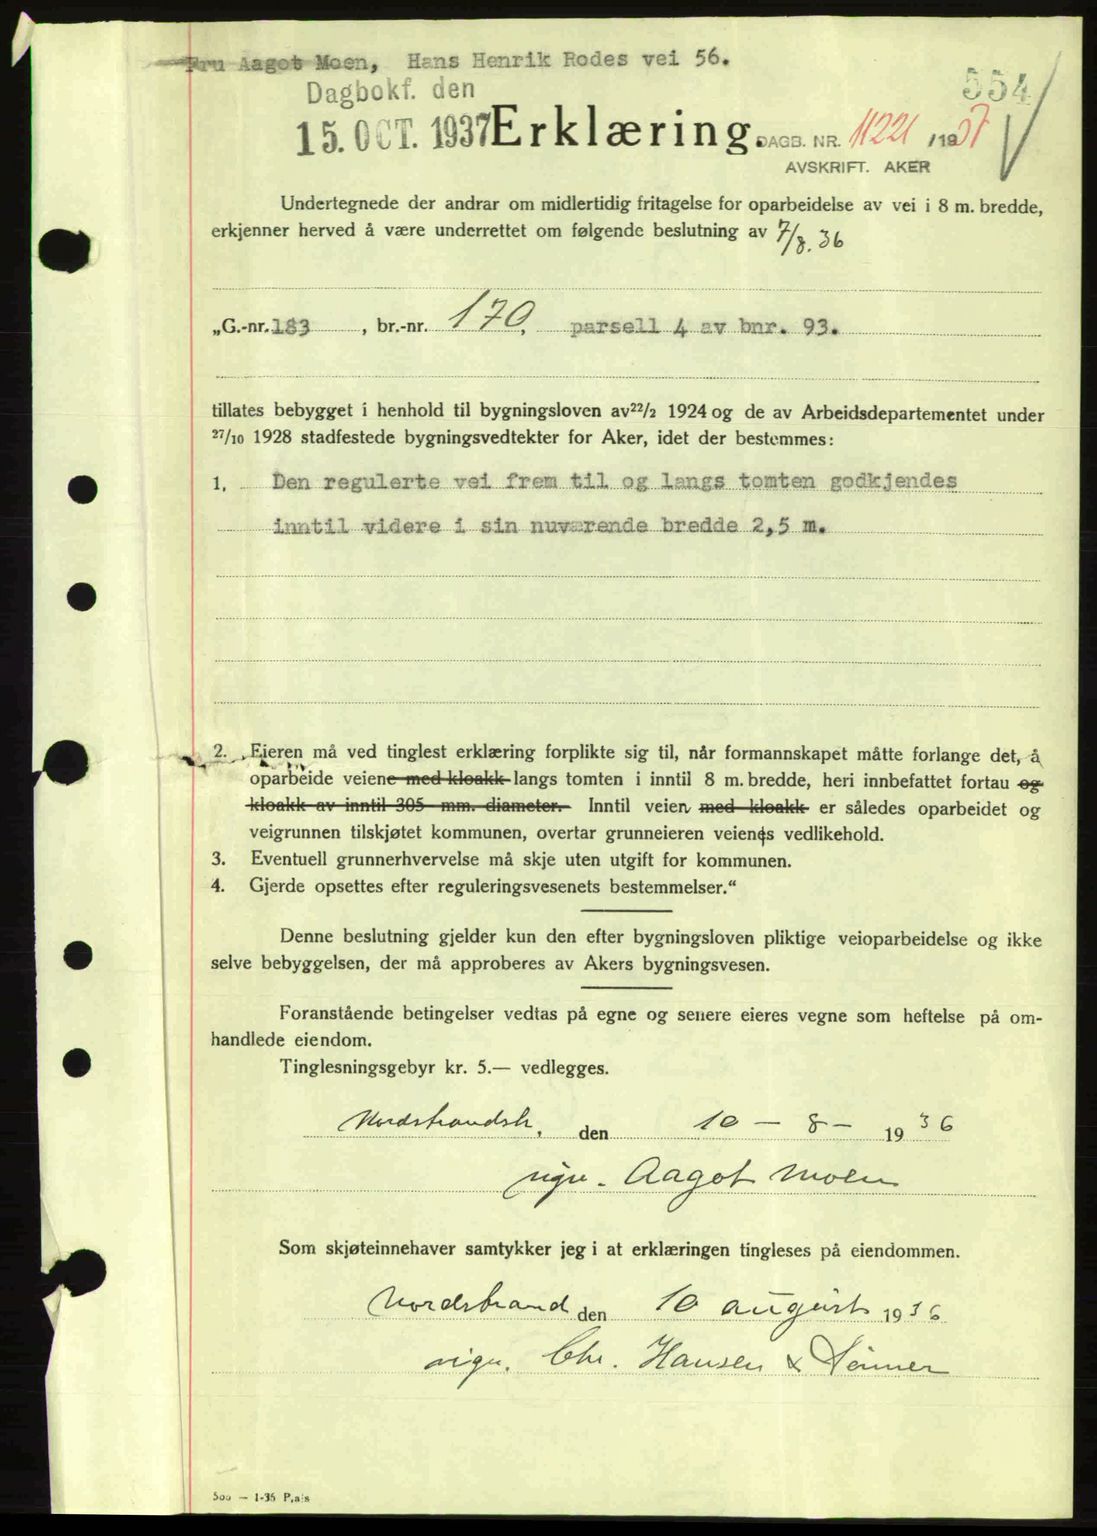 Fru Aagot Moen, Hans Henrik Rodes vei 56.
554
Dagbokf. den
15. OCT. 1937 Erklæring. DAGB. NR. 11221 /1937
AVSKRIFT. AKER
Undertegnede der andrar om midlertidig fritagelse for oparbeidelse av vei i 8 m. bredde,
erkjenner herved å være underrettet om følgende beslutning av 7/8. 36
„G.-nr. 183 , br.-nr. 170, parsell 4 av bnr. 93.
tillates bebygget i henhold til bygningsloven av 22/2 1924 og de av Arbeidsdepartementet under
27/10 1928 stadfestede bygningsvedtekter for Aker, idet der bestemmes:
1. Den regulerte vei frem til og langs tomten godkjendes
inntil videre i sin nuværende bredde 2,5 m.
2. Eieren må ved tinglest erklæring forplikte sig til, når formannskapet måtte forlange det, å
oparbeide veiene med kloakk langs tomten i inntil 8 m. bredde, heri innbefattet fortau og
kloakk av inntil 305 mm. diameter. Inntil veien med kloakk er således oparbeidet og
veigrunnen tilskjøtet kommunen, overtar grunneieren veiens vedlikehold.
3. Eventuell grunnerhvervelse må skje uten utgift for kommunen.
4. Gjerde opsettes efter reguleringsvesenets bestemmelser.“
Denne beslutning gjelder kun den efter bygningsloven pliktige veioparbeidelse og ikke
selve bebyggelsen, der må approberes av Akers bygningsvesen.
Foranstående betingelser vedtas på egne og senere eieres vegne som heftelse på om-
handlede eiendom.
Tinglesningsgebyr kr. 5.— vedlegges.
Nordstrandsh. den 10 - 8 - 1936
sign. Aagot Moen
Som skjøteinnehaver samtykker jeg i at erklæringen tingleses på eiendommen.
Nordstrand den 10 august 1936
sign. Chr. Hansen &
500 — 1-36 P.a.s